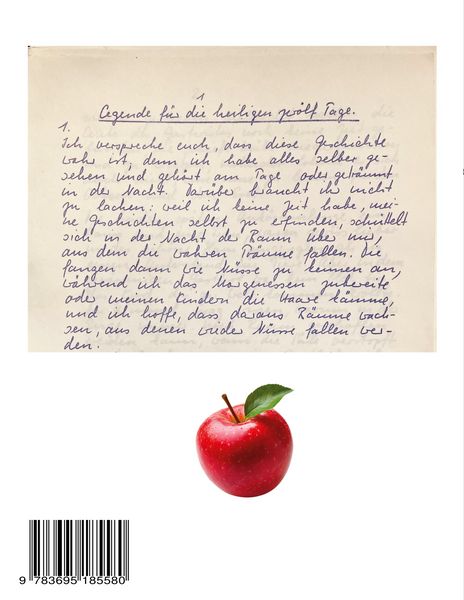 1
Legende für die heiligen zwölf Tage.
1.
Ich verspreche euch, dass diese Geschichte
wahr ist, denn ich habe alles selber ge-
sehen und gehört am Tage oder geträumt
in der Nacht. Darüber braucht ihr nicht
zu lachen: weil ich keine Zeit habe, mei-
ne Geschichten selbst zu erfinden, schüttelt
sich in der Nacht der Baum über mir,
aus dem die wahren Träume fallen. Die
fangen dann wie Nüsse zu keimen an,
während ich das Morgenessen zubereite
oder meinen Kindern die Haare kämme,
und ich hoffe, dass daraus Bäume wach-
sen, aus denen wieder Nüsse fallen wer-
den.
9 783695 185580